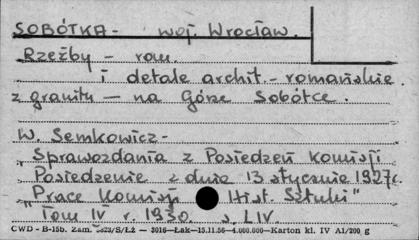 SOBÓTKA - woj. Wrocław.
Rzeźby - rom.
i detale archit. - romańskie.
z granitu - na Górze Sobótce.
W. Semkowicz -
"Sprawozdania z Posiedzeń Komisji
Posiedzenie z dnia 13 stycznia 1927 r.
"Prace Komisji Hist. Sztuki"
Tom IV r. 1930. s. LIV.
CWD - B-15b. Zam. 5823/S/Łż — 3016—Łak—15.11.56—4.000.000—Karton kl. IV A1/200 g